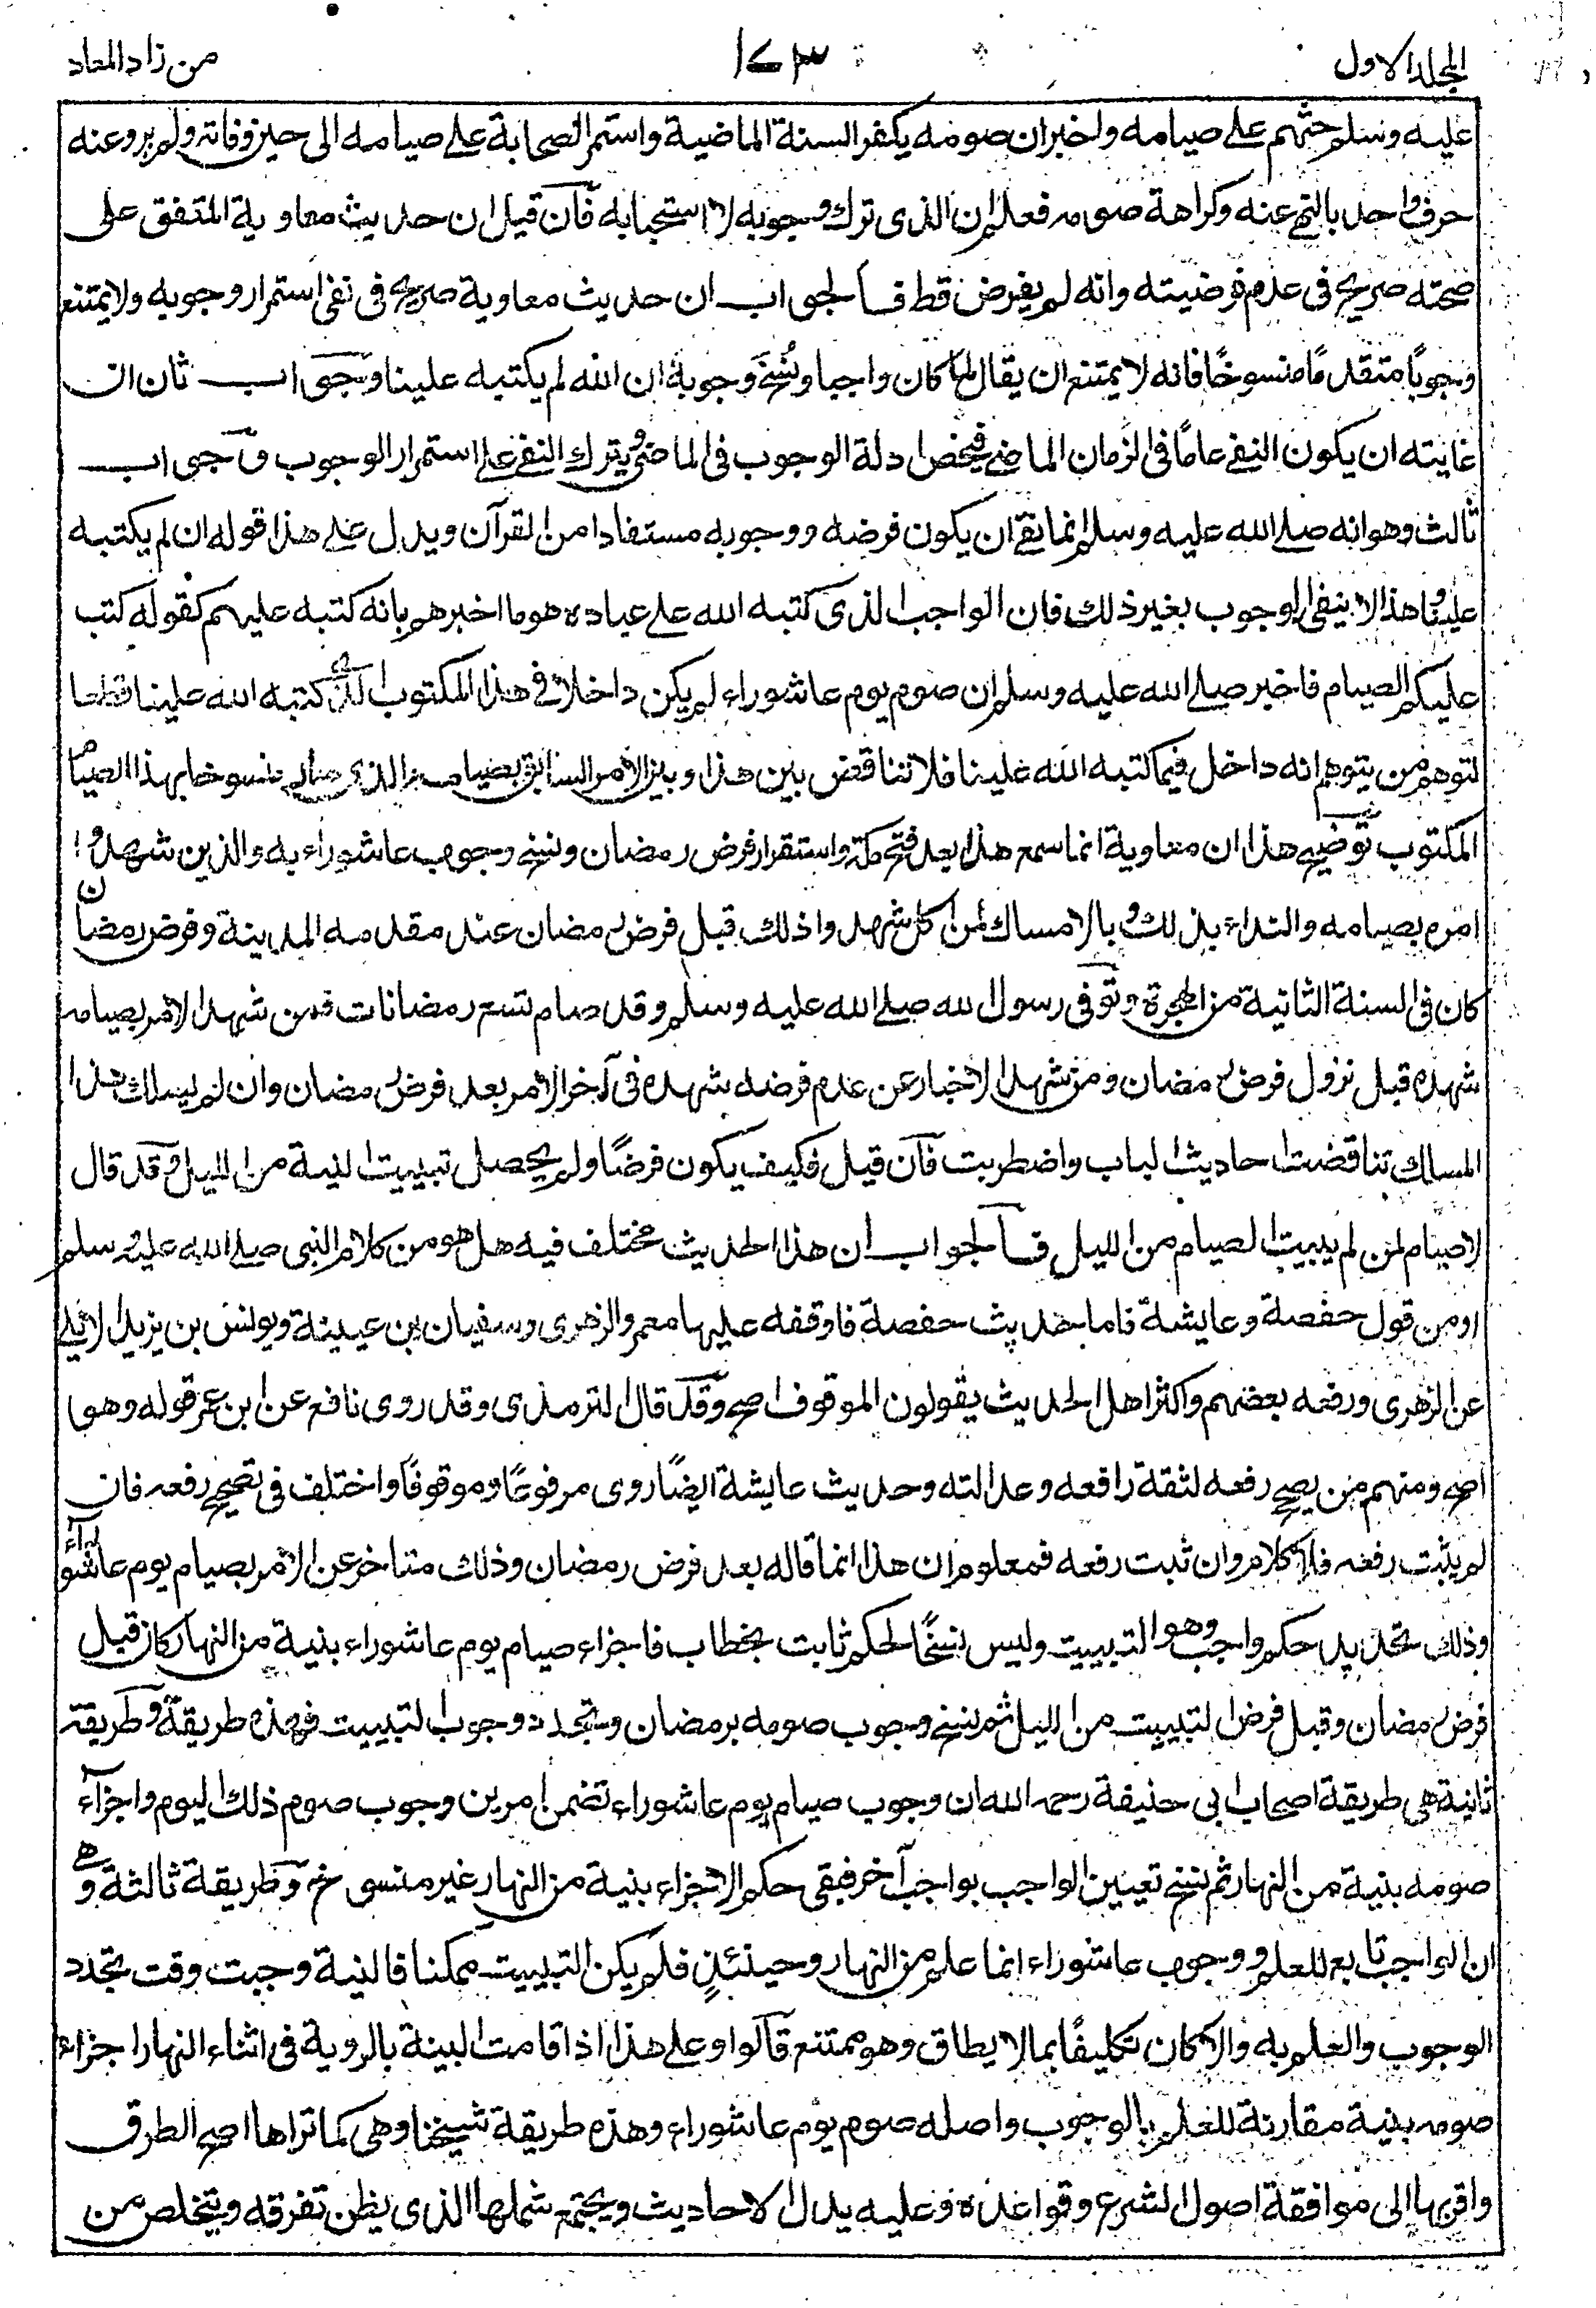 المجلد الاول ١٧٣ من زاد المعاد
عليه وسلم حثهم على صيامه واخبر ان صومه يكفر السنة الماضية واستمر الصحابة على صيامه الى حين وفاته ولم يرو عنه
حرف واحد بالنهي عنه وكراهة صومه فعلم ان الذى ترك وجوبه لا استحبابه فان قيل ان حديث معاوية المتفق على
صحته صريح فى عدم فرضيته وانه لم يفرض قط فالجواب ان حديث معاوية صريح فى نفى استمرار وجوبه ولا يمتنع
وجوبًا متقدمًا منسوخًا فانه لا يمتنع ان يقال لما كان واجبا ونُسِخَ وجوبه ان الله لم يكتبه علينا وجواب ثان ان
غايته ان يكون النفى عامًا فى الزمان الماضى فيخص ادلة الوجوب فى الماضى ويترك النفى على استمرار الوجوب وجواب
ثالث وهو انه صلى الله عليه وسلم انما نفى ان يكون فرضه ووجوبه مستفادا من القرآن ويدل على هذا قوله ان لم يكتبه
علينا وهذا لا ينفى الوجوب بغير ذلك فان الواجب الذى كتبه الله على عباده هو ما اخبرهم بانه كتبه عليهم كقوله كتب
عليكم الصيام فاخبر صلى الله عليه وسلم ان صوم يوم عاشوراء لم يكن داخلا فى هذا المكتوب الذى كتبه الله علينا قطعا
لتوهم من يتوهم انه داخل فيما كتبه الله علينا فلا تناقض بين هذا وبين الامر السابق بصيامه الذى صار منسوخا بهذا الصيام
المكتوب توضيح هذا ان معاوية انما سمع هذا بعد فتح مكة واستقرار فرض رمضان ونسخ وجوب عاشوراء به والذين شهدوا
امره بصيامه والنداء بذلك وبالامساك لمن اكل شهدوا ذلك قبل فرض رمضان عند مقدمه المدينة وفرض رمضان
كان فى السنة الثانية من الهجرة وتوفى رسول الله صلى الله عليه وسلم وقد صام تسع رمضانات فمن شهد الامر بصيامه
شهده قبل نزول فرض رمضان ومن شهد الاخبار عن عدم فرضه شهده فى آخر الامر بعد فرض رمضان وان لم يسلك هذا
المسلك تناقضت احاديث الباب واضطربت فان قيل فكيف يكون فرضًا ولم يحصل تبييت النية من الليل وقد قال
لا صيام لمن لم يبيت الصيام من الليل فالجواب ان هذا الحديث مختلف فيه هل هو من كلام النبى صلى الله عليه وسلم
او من قول حفصة وعايشة فاما حديث حفصة فاوقفه عليها معمر والزهرى وسفيان بن عيينة ويونس بن يزيد الايلى
عن الزهرى ورفعه بعضهم واكثر اهل الحديث يقولون الموقوف اصح وقد قال الترمذى وقد روى نافع عن ابن عمر قوله وهو
اصح ومنهم من يصحح رفعه لثقة رافعه وعدالته وحديث عايشة ايضًا روى مرفوعًا وموقوفًا واختلف فى تصحيح رفعه فان
لم يثبت رفعه فلا كلام وان ثبت رفعه فمعلوم ان هذا انما قاله بعد فرض رمضان وذلك متاخر عن الامر بصيام يوم عاشوراء
وذلك تجديد حكم واجب وهو التبييت وليس نسخًا لحكم ثابت بخطاب فاجزاء صيام يوم عاشوراء بنية من النهار كان قبل
فرض رمضان وقبل فرض التبييت من الليل ثم نسخ وجوب صومه برمضان وتجدد وجوب التبييت فهذه طريقة وطريقة
ثانية هى طريقة اصحاب ابى حنيفة رحمه الله ان وجوب صيام يوم عاشوراء تضمن امرين وجوب صوم ذلك اليوم واجزاء
صومه بنية من النهار ثم نسخ تعيين الواجب بواجب آخر فبقى حكم الاجزاء بنية من النهار غير منسوخ وطريقة ثالثة وهى
ان الواجب تابع للعلم ووجوب عاشوراء انما علم من النهار وحينئذٍ فلم يكن التبييت ممكنا فالنية وجبت وقت تجدد
الوجوب والعلم به والا كان تكليفًا بما لا يطاق وهو ممتنع قالوا وعلى هذا اذا قامت البينة بالروية فى اثناء النهار اجزاء
صومه بنية مقارنة للعلم بالوجوب واصله صوم يوم عاشوراء وهذه طريقة شيخنا وهى كما تراها اصح الطرق
واقربها الى موافقة اصول الشرع وقواعده وعليه يدل الاحاديث ويجتمع شملها الذى يظن تفرقه ويتخلص من